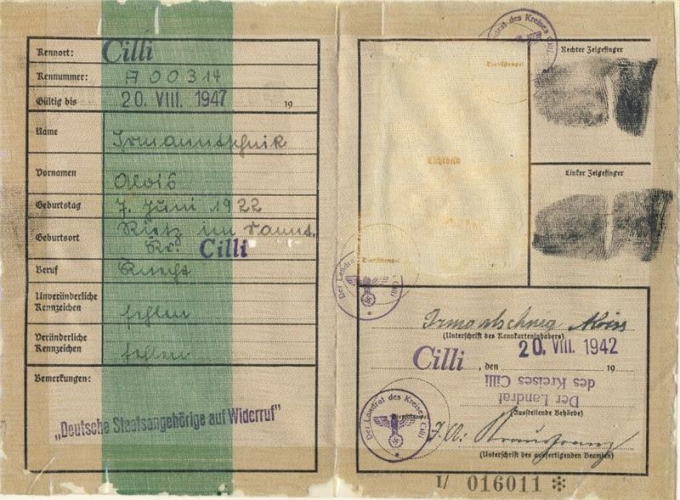 Kennort: Cilli
Kennummer: A 00314
Gültig bis 20. VIII. 1947 19
Name
Vornamen Alois
Geburtstag 7. Juni 1922
Geburtsort Rietz im Sannt.
Kr. Cilli
Beruf Knecht
Unveränderliche
Kennzeichen fehlen
Veränderliche
Kennzeichen fehlen
Bemerkungen:
„Deutsche Staatsangehörige auf Widerruf"
Der Landrat des Kreises Cilli
Dienststempel
Lichtbild
Dienststempel
Rechter Zeigefinger
Linker Zeigefinger
Der Landrat des Kreises Cilli
Alois
(Unterschrift des Kennkarteninhabers)
Cilli, den 20. VIII. 1942 19
Der Landrat
des Kreises Cilli
(Ausstellende Behörde)
Der Landrat des Kreises Cilli
J.A.:
(Unterschrift des ausfertigenden Beamten)
I/ 016011 *